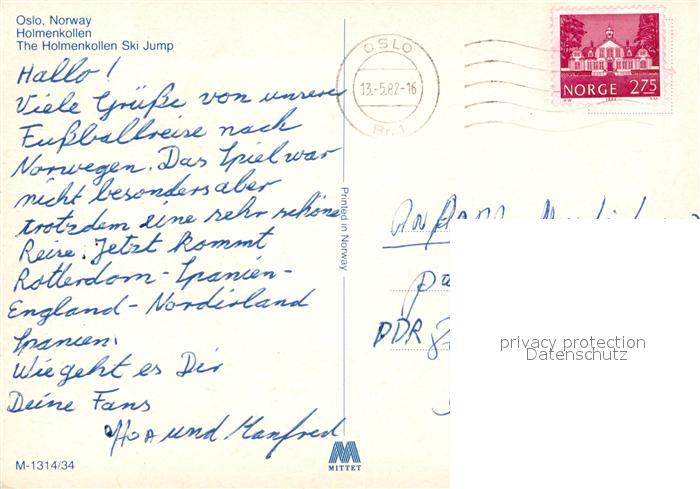 Oslo, Norway
Holmenkollen
The Holmenkollen Ski Jump
Hallo!
Viele Grüße von unserer
Fußballreise nach
Norwegen. Das Spiel war
nicht besonders aber
trotzdem eine sehr schöne
Reise. Jetzt kommt
Rotterdam - Spanien -
England - Nordirland
Spanien.
Wie geht es Dir
Deine Fans
und Manfred
M-1314/34
MITTET
Printed in Norway
OSLO
13.-5.82-16
Br. 1
NORGE 275
DDR
privacy protection
Datenschutz